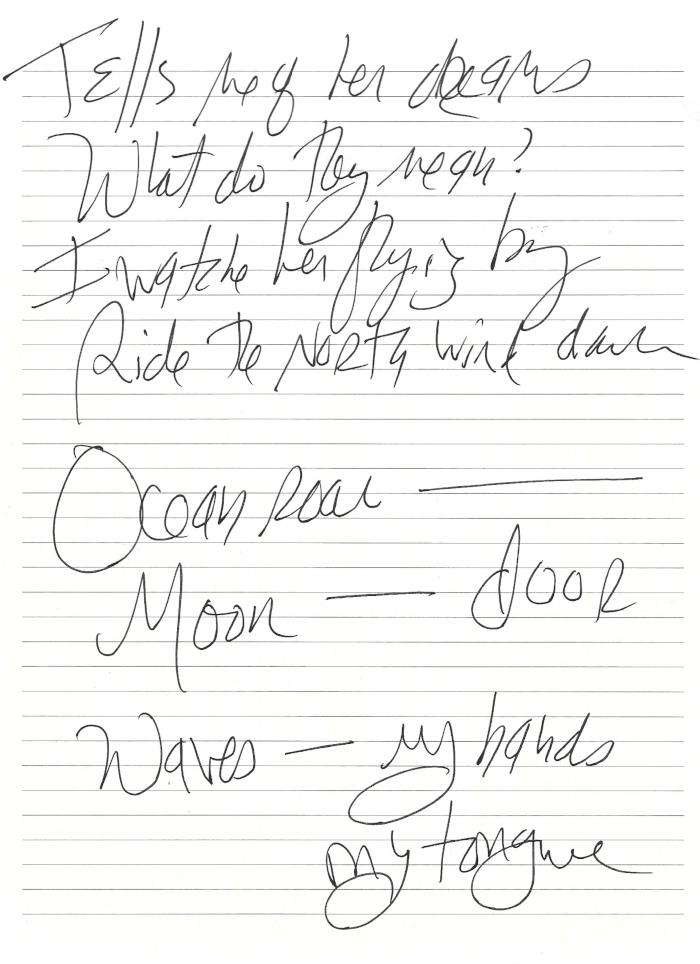 Tells me of her dreams
What do they mean?
I watche her flying by
Ride the North Wind down
Ocean roar —
Moon — door
Waves — my hands
my tongue